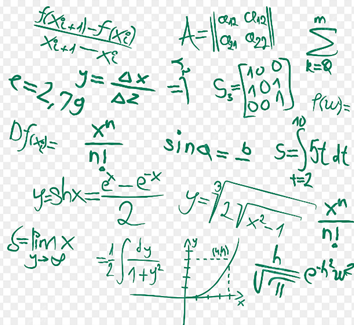 f(xᵢ₊₁)-f(xᵢ) / xᵢ₊₁-xᵢ
A = ‖a₁₂ a₁₂; a₂₁ a₂₂‖
m ∑ k=0
e=2,7g
y = Δx / Δz
S₃ [1 0 0; 1 0 1; 0 0 1]
P(w)=
Df(xᵢ)=
xⁿ / n!
sin a = b
S = ∫ 10 t=2 5t dt
y=shx= eˣ - e⁻ˣ / 2
y = ∛(2√(x²-1))
xⁿ / n!
S=lim x y→∞
= 1/2 ∫ dy / 1+y²
y
x
h / √π e^-h²w²